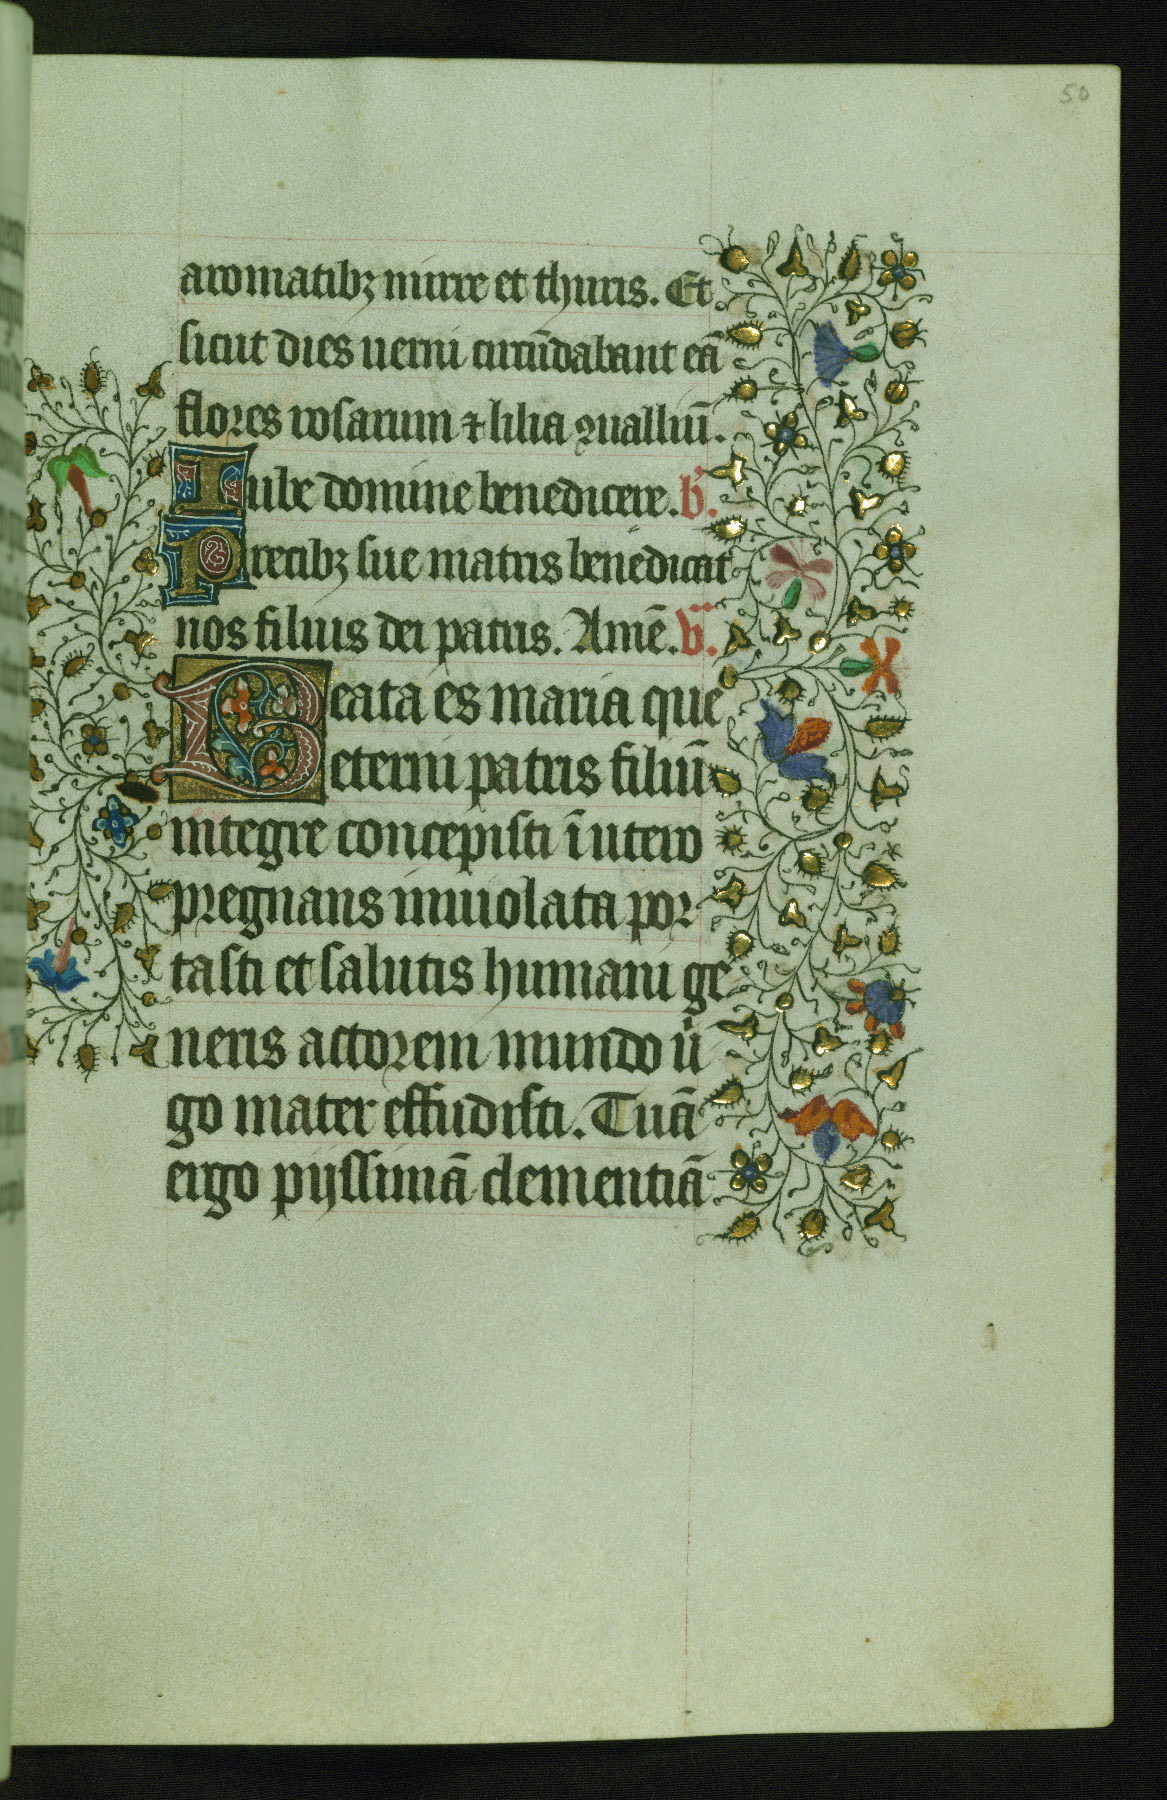 50
aromatibꝫ mirre et thuris. Et
sicut dies uerni circūdabant eā
flores rosarum ⁊ lilia ꝯualliū.
Iube domine benedicere. b'.
Precibꝫ sue matris benedicat
nos filius dei patris. Amē. v̄.
Beata es maria que
eterni patris filiū
integre concepisti ī utero
pregnans inuiolata por-
tasti et salutis humani ge
neris actorem mundo uͥ
go mater effudisti. Tuā
ergo pijssimā clementiā